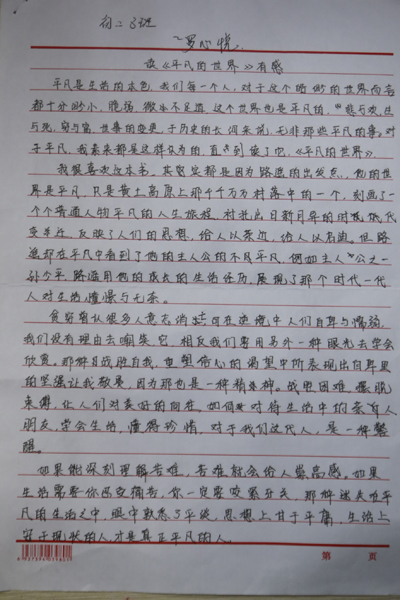 初二3班
罗心悦
读《平凡的世界》有感
平凡是生活的本色,我们每一个人,对于这个浩渺的世界而言
都十分渺小、脆弱,微小不足道,这个世界也是平凡的,悲与欢,生
与死,穷与富,世事的变更,于历史的长河来说,无非那些平凡的事。对
于平凡,我素来都是这样认为的,直到读了它,《平凡的世界》。
我很喜欢这本书,其实全都是因为路遥的出发点,他的世
界是平凡,只是黄土高原上那千千万万村落中的一个,刻画了一
个个普通人物平凡的人生旅程,衬托出日新月异的时代
变迁,反映了人们的思想,给人以亲切,给人以启迪。但路
遥却在平凡中看到了他的主人公的不凡平凡,例如主人公之一
孙少平,路遥用他的成长的生活经历,展现了那个时代一代
人对生活憧憬与无奈。
贫穷
我们没有理由去嘲笑它,相反我们要用另外一种眼光去学会
欣赏。那种战胜自我,重塑信心的渴望中所表现出自卑里
的坚强让我敬佩,因为那也是一种精神。战胜困难,摆脱
束缚,让人们对美好的向往,如何对待生活中的亲育人
朋友,学会生活,懂得珍惜,对于我们这代人,是一种警
醒。
如果能深刻理解苦难,苦难就会给人崇高感。如果
生活需要你忍受痛苦,你一定要咬紧牙关,那种迷失在平
凡的生活之中,眼中熟悉了平淡,思想上甘于平庸,生活上
安于现状的人,才是真正平凡的人。
第 页